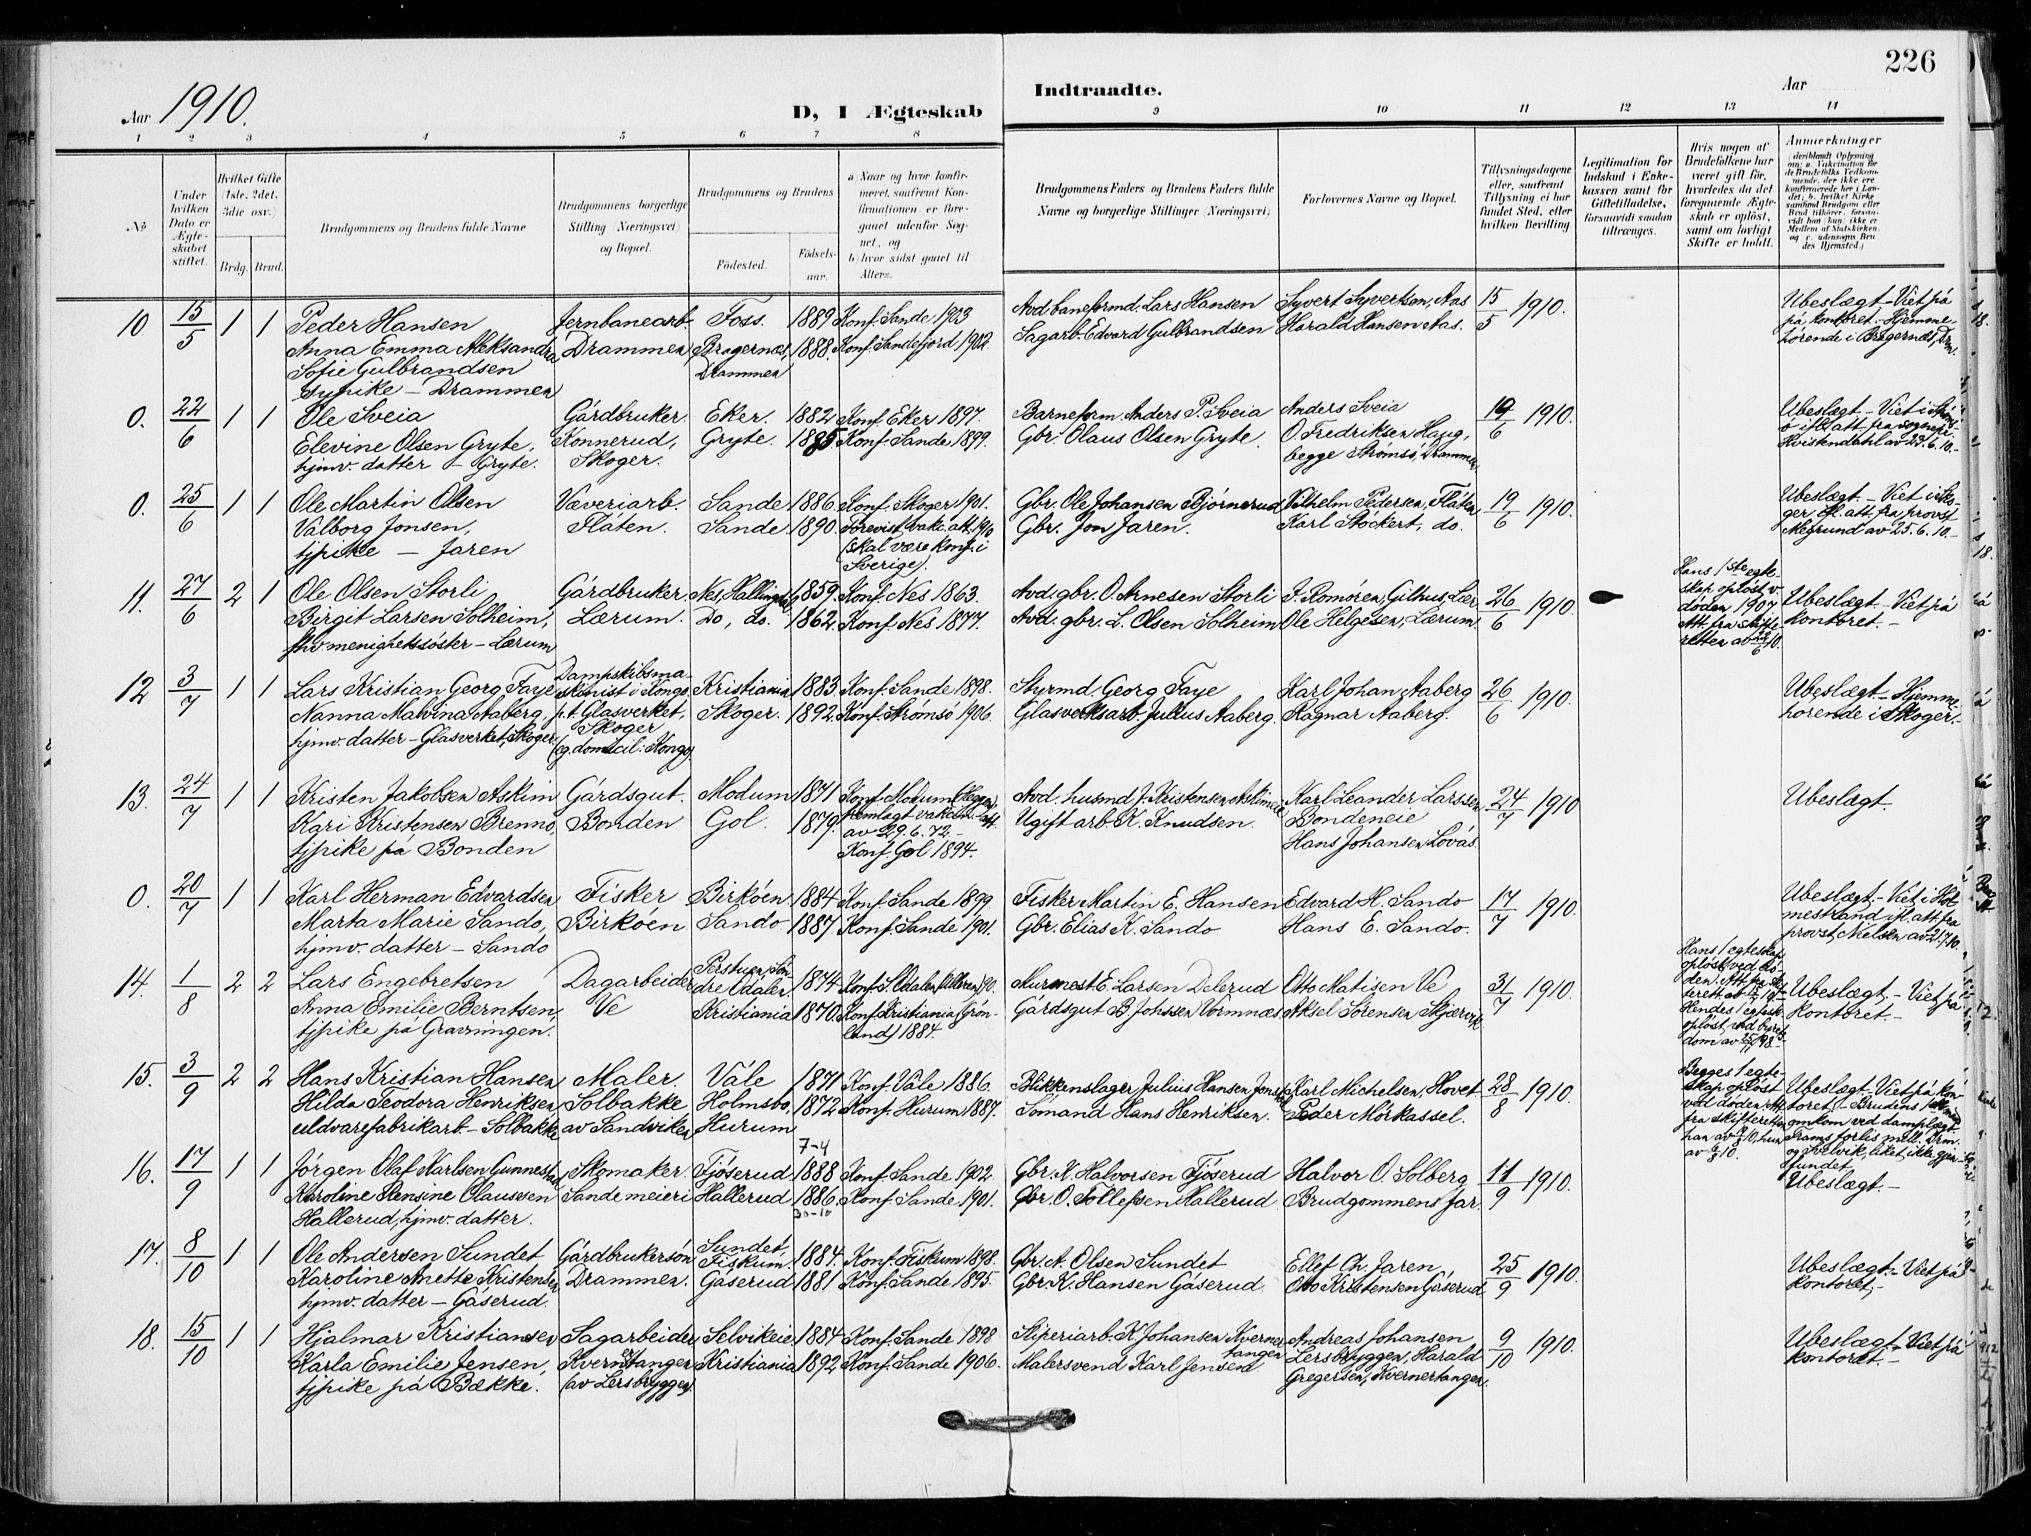 226
Aar 1910.
D, I Ægteskab
Indtraadte.
Aar
1 2 3 4 5 6 7 8 9 10 11 12 13 14
No
Under hvilken Dato er Ægteskabet stiftet.
Hvilket Gifte (1ste, 2det, 3die osv.)
Brdg. Brud.
Brudgommens og Brudens fulde Navne
Brudgommens borgerlige Stilling (Næringsvei) og Bopæl.
Brudgommens og Brudens
Födested.
Födselsaar.
a) Naar og hvor konfirmeret, saafremt Konfirmationen er foregaaet udenfor Sognet, og
b) hvor sidst gaaet til Alters.
Brudgommens Faders og Brudens Faders fulde Navne og borgerlige Stillinger (Næringsvei)
Forlovernes Navne og Bopæl.
Tillysningsdagene eller, saafremt Tillysning ei har fundet Sted, efter hvilken Bevilling.
Legitimation for Indskud i Enkekassen samt for Giftetilladelse, forsaavidt saadan tiltrænges.
Hvis nogen af Brudefolkene har været gift før, hvorledes da det foregaaende Ægteskab er opløst, samt om lovligt Skifte er holdt.
Anmærkninger
10 15/5 1 1 Peder Hansen
Anna Emma Aleksandra
Sofie Gulbrandsen
sypike – Drammen
Jernbanearb.
Drammen
Foss. 1889 Konf. Sande 1903
Bragernæs, Drammen 1888. Konf. Sandefjord 1902
Avd. baneformd. Lars Hansen
Sagarb. Edvard Gulbrandsen
Syvert Syvertsen, Aas
Harald Hansen Aas.
15/5 1910.
Ubeslægt – Viet på
på kontoret. – Hjemme-
hørende i Bragernæs, Drm.
0. 22/6 1 1 Ole Sveia
Elevine Olsen Gryte,
hjmv. datter – Gryte.
Gårdbruker
Konnerud,
Skoger.
Eker. 1882 Konf. Eker 1897.
Gryte. 1885. Konf. Sande 1899.
Baneform. Anders P. Sveia
Gbr. Olaus Olsen Gryte.
Anders Sveia
O. Fredriksen Haug,
begge Strømsø, Drammen
19/6 1910.
Ubeslægt – Viet i Strøms-
ø ifl. att. fra sognepr.
Hvistendahl av 23.6.10.–
0. 25/6 1 1 Ole Martin Olsen
Valborg Jonsen,
tjpike – Jaren
Væveriarb.
Flaten.
Sande 1886 Konf. Skoger 1901.
Sande 1890 Forevist vakc. att. 1910
(skal være konf. i
Sverige).
Gbr. Ole Johansen Bjørnerud
Gbr. Jon Jaren.
Vilhelm Pedersen, Flåten
Karl Støckert, do.
19/6 1910.
Ubeslægt – Viet i Sko-
ger ifl. att. fra provst
av 25.6.10.–
11. 27/6 2 1 Ole Olsen Storli
Birgit Larsen Solheim,
fhv menighetssöster – Lærum
Gårdbruker
Lærum.
Nes, Hallingdal 1859. Konf. Nes 1863.
Do, do. 1862 Konf. Nes 1877.
Avd. gbr. O Arnesen Storli
Avd. gbr. L. Olsen Solheim
J. Romøren, Gilhus, Lier
Ole Helgesen, Lærum.
26/6 1910.
Hans 1ste egte-
skap opløst v.
døden 1907
Att. fra skifte-
retten av 22/6 10.
Ubeslægt – Viet på
kontoret. –
12 3/7 1 1 Lars Kristian Georg Faye
Nanna Malvina Aaberg,
hjmv. datter – Glasverket, Skoger.
Dampskibsma-
skinist i Kongo
p.t. Glasverket,
Skoger
(eg. domicil: Kongo)
Kristiania 1883. Konf. Sande 1898.
Skoger. 1892. Konf. Strømsø 1906.
Styrmd. Georg Faye
Glasverksarb. Julius Aaberg,
Karl Johan Aaberg
Ragnar Aaberg.
26/6 1910.
Ubeslægt – Hjemme-
hørende i Skoger. –
13. 24/7 1 1 Kristen Jakobsen Askim
Kari Kristensen Brenno,
tjpike på Bonden
Gårdsgut.
Bonden
Modum 1871 Konf. Modum (Heggen)
fremlagt vakcin-att.
av 29.6.72. –
Gol. 1879. Konf. Gol 1894.
Avd. husmd J. Kristensen Askimeie
Ugift arb. K. Knudsen.
Karl Leander Larssen
Bondeneie
Hans Johansen Lövås.
24/7 1910
Ubeslægt.
0. 20/7 1 1 Karl Herman Edvardsen
Marta Marie Sando,
hjmv. datter – Sando
Fisker
Birkøen
Birkøen 1884 Konf. Sande 1899
Sando 1887 Konf. Sande 1901.
Fisker Martin E. Hansen
Gbr. Elias K. Sando
Edvard H. Sando
Hans E. Sando.
17/7 1910.
Ubeslægt. – Viet i Hol-
mestrand ifl. att. fra
provst Nielsen av 21.7.10.
14. 1/8 2 2 Lars Engebretsen
Anna Emilie Berntsen,
tjpike på Gravningen.
Dagarbeider
Ve
Perstuen, Søn-
dre Odalen 1874 Konf. S. Odalen 90.
Kristiania 1870. Konf. Kristiania (Grøn-
land) 1884.
Murmest. E. Larsen Delerud
Gårdsgut B. Johssen Vormnæs
Otto Matisen Ve
Aksel Sørensen Skjærvik
31/7 1910.
Hans 1 egteskap
opløst ved dø-
den. Att. fra skif-
terett
Hendes 1 egtesk.
opløst ved byrets-
dom av 25/11 98.–
Ubeslægt – Viet på
kontoret. –
15. 3/9 2 2 Hans Kristian Hansen
Hilda Teodora Henriksen
uldvarefabrikarb. – Solbakke
Maler.
Solbakke
av Sandviken
Våle 1871 Konf. Våle 1886.
Holmsbo, Hurum 1872 Konf. Hurum 1887.
Blikkenslager Julius Hansen
Sømand Hans Henriksen.
Karl Michelsen, Hovet
Peder Mörkassel.
28/8 1910.
Begges 1 egte-
skap opløst
ved døden. Att.
fra skifteretten
han av 9/8 10, hun
av 9/8 10.
Ubeslægt – Viet på kon-
toret. – Brudens 1
omkom ved damplægt.
Frams forlis mell. Drm.
og Svelvik, liket ikke gjen-
fundet.
16. 17/9 1 1 Jörgen Olaf Karlsen Gunnestad
Karoline Stensine Olaussen
Hallerud, hjmv. datter.
Skomaker.
Sande meieri
Fjöserud 7–4 1888 Konf. Sande 1902.
Hallerud 1886. 30–10 Konf. Sande 1901.
Gbr. K. Halvorsen Fjöserud
Gbr. O. Tollefsen Hallerud
Halvor O. Solberg
Brudgommens far.
11/9 1910.
Ubeslægt. –
17. 8/10 1 1 Ole Andersen Sundet
Karoline Anette Kristensen
hjmv. datter – Gåserud.
Gårdbrukersön
Drammen.
Sundet, Fiskum 1884. Konf. Fiskum 1898.
Gåserud 1881 Konf. Sande 1895.
Gbr. A. Olsen Sundet
Gbr. K. Hansen Gåserud.
Ellef Ch. Jaren,
Otto Kristensen Gåserud
25/9 1910.
Ubeslægt. – Viet på
kontoret. –
18. 15/10 1 1 Hjalmar Kristiansen
Karla Emilie Jensen,
tjpike på Bække.
Sagarbeider
Kvernertangen
(av Lersbryggen)
Selvikeie 1884 Konf. Sande 1898
Kristiania 1892 Konf. Sande 1906.
Sliperiarb. K Johansen Kverner-
tangen
Malersvend Karl Jensen
Andreas Johansen
Lersbryggen, Harald
Gregersen, Kvernertangen.
9/10 1910.
Ubeslægt – Viet på
kontoret. –